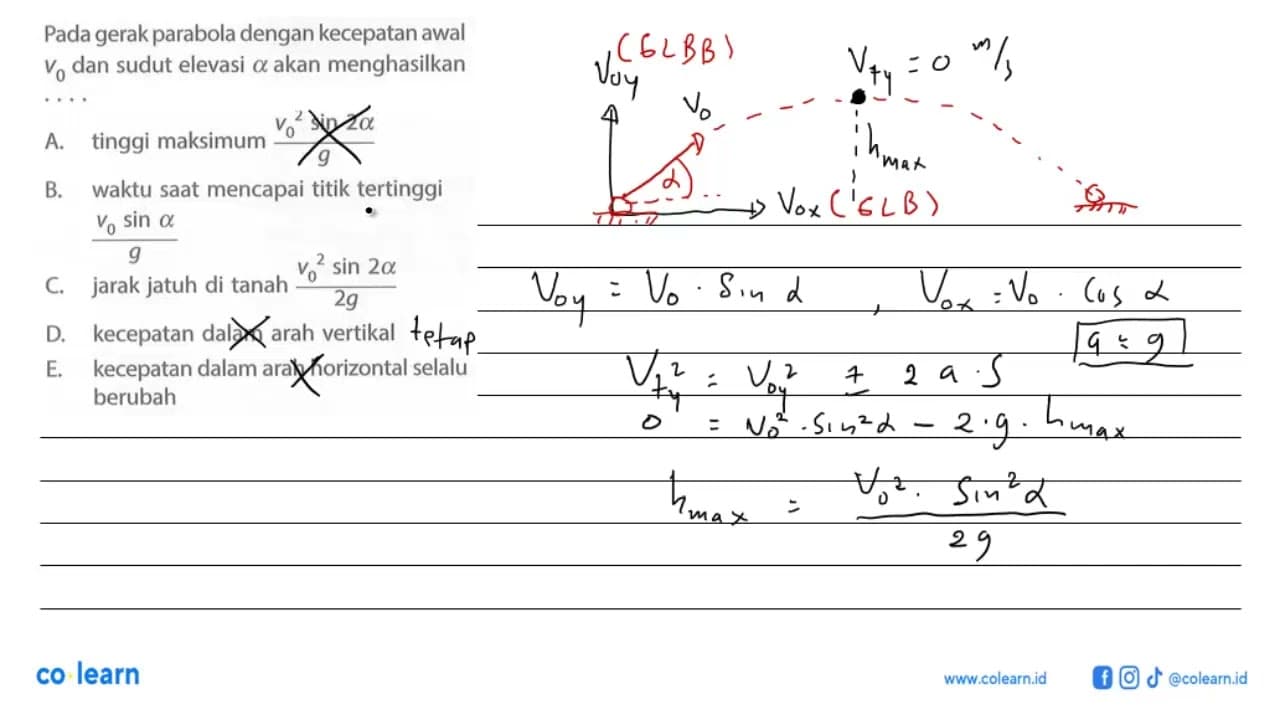 Pada gerak parabola dengan kecepatan awal
v₀ dan sudut elevasi α akan menghasilkan
....
A. tinggi maksimum v₀² sin 2α / g
B. waktu saat mencapai titik tertinggi
v₀ sin α / g
C. jarak jatuh di tanah v₀² sin 2α / 2g
D. kecepatan dalam arah vertikal tetap
E. kecepatan dalam arah horizontal selalu
berubah
(GLBB)
Voy
Vo
α
Vty = 0 m/s
hmax
Vox (GLB)
Voy = Vo · Sin α , Vox = Vo · Cos α
a = g
Vty² = Voy² ± 2 a · S
0 = Vo² · Sin²α - 2 · g · hmax
hmax = Vo² · Sin²α / 2g
co learn
www.colearn.id
@colearn.id